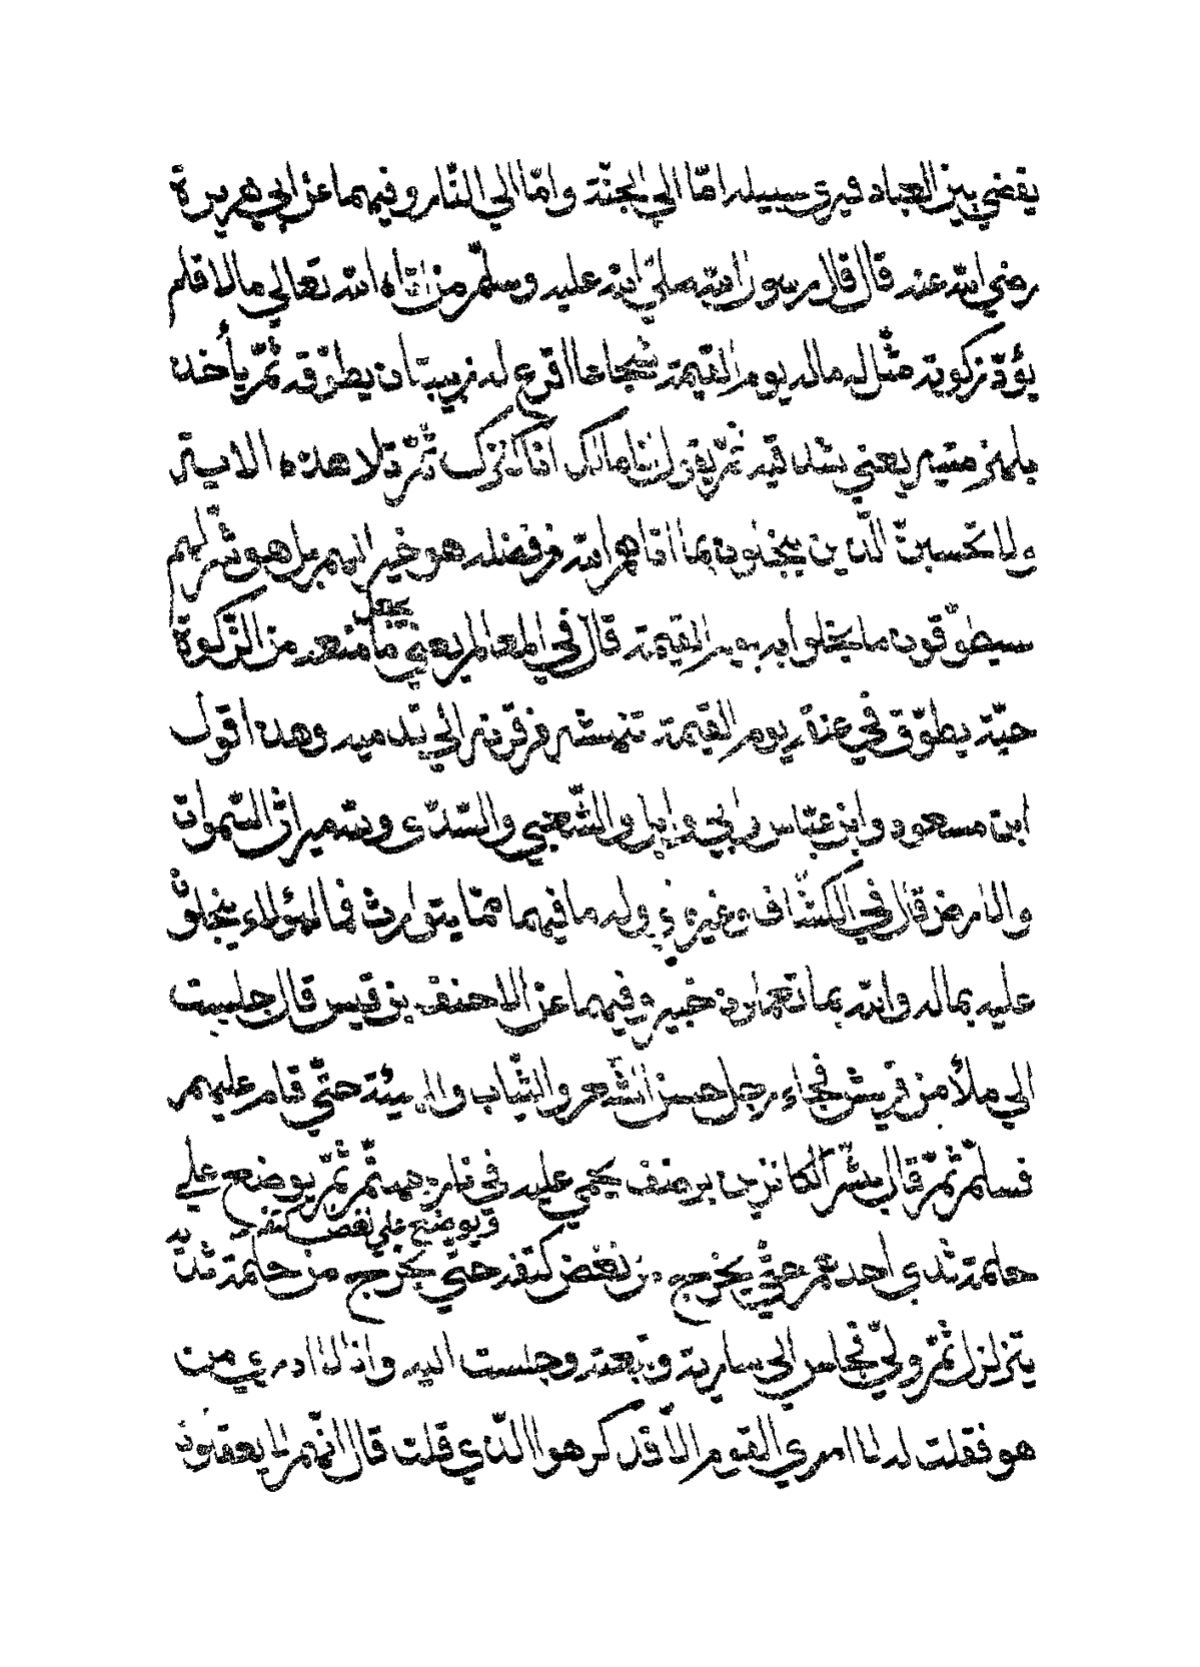 يقضي بين العباد فيري سبيله امّا الي الجنّة وامّا الي النّار وفيهما عن ابي هريرة
رضي الله عنه قال قال رسول الله صلّي الله عليه وسلّم من اتاه الله تعالي مالا فلم
يؤدّ زكوته مثّل له ماله يوم القيمة شجاعا اقرع له زبيبتان يطوّقه ثمّ يأخذ
بلهزمتيه يعني شدقيه ثمّ يقول انا مالك انا كنزك ثمّ تلا هذه الاية
ولا تحسبنّ الّذين يبخلون بما اتاهم الله من فضله هو خيرا لهم بل هو شرّ لهم
سيطوّقون ما بخلوا به يوم القيمة قال في المعالم يعني يجعل ما منعه من الزّكوة
حيّة يطوّق في عنقه يوم القيمة تنهشه من قرنه الي قدميه وهذا قول
ابن مسعود وابن عبّاس وابي وايل والشّعبي والسّدّي ولله ميراث السّموات
والارض قال في الكشّاف وغيره وله ما فيهما ممّا يتوارث فما لهؤلاء يبخلون
عليه بماله والله بما تعملون خبير وفيهما عن الاحنف بن قيس قال جلست
الي ملأ من قريش فجاء رجل حسن الشّعر والثّياب والهيئة حتّي قام عليهم
فسلّم ثمّ قال بشّر الكانزين برضف يحمي عليه في نار جهنّم ثمّ يوضع علي
ويوضع علي نغض كتفه
حلمة ثدي احدهم حتّي يخرج من نغض كتفه حتّي يخرج من حلمة ثديه
يتزلزل ثمّ ولّي فجلس الي سارية وتبعته وجلست اليه وانا لا ادري من
هو فقلت له لا اري القوم الّا قد كرهوا الّذي قلت قال انّهم لا يعقلون